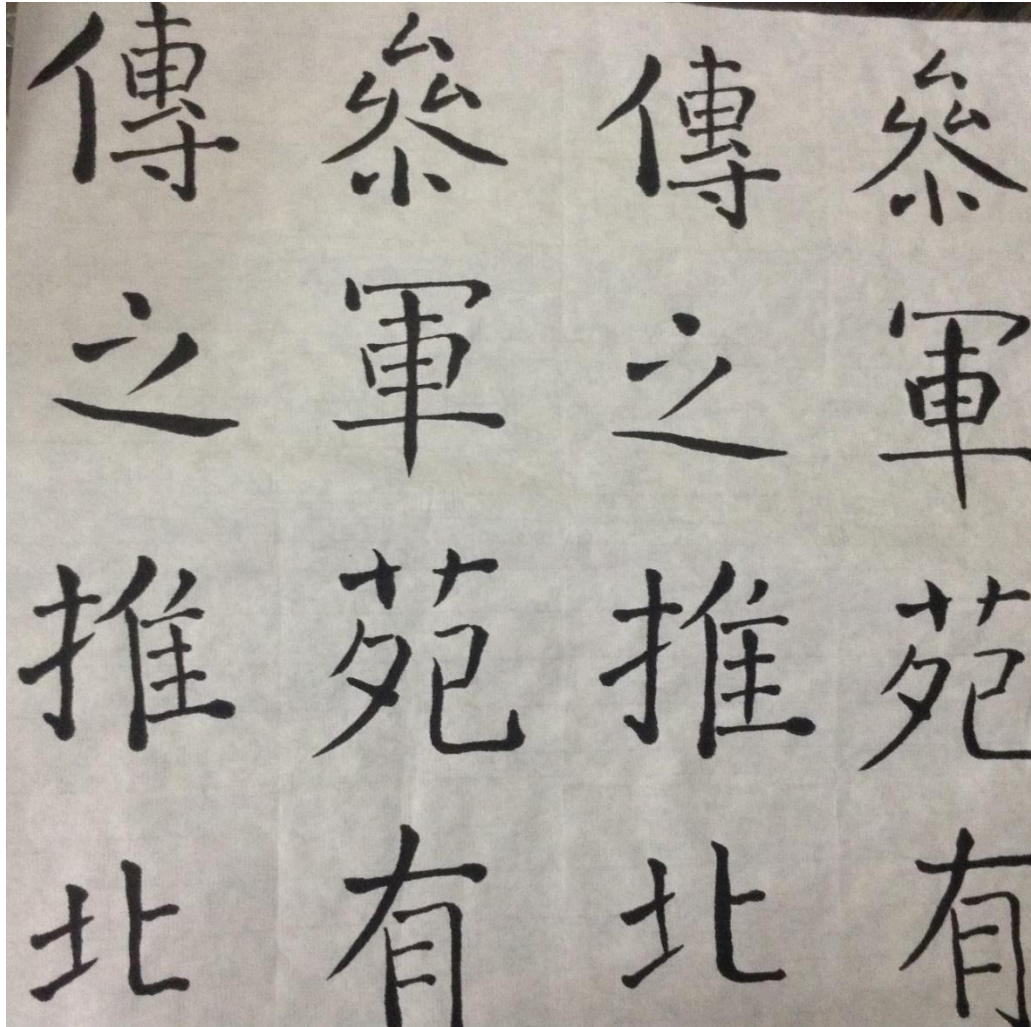 叅軍苑有
傳之推北
叅軍苑有
傳之推北